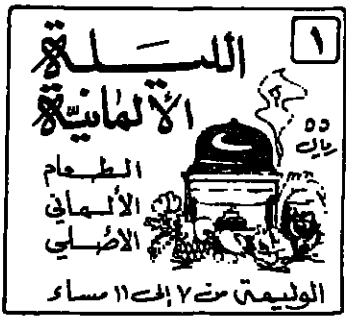 ١
الليلة
الألمانية
٥٥
ريال
الطعام
الألماني
الأصلي
الوليمة من ٧ إلى ١١ مساء